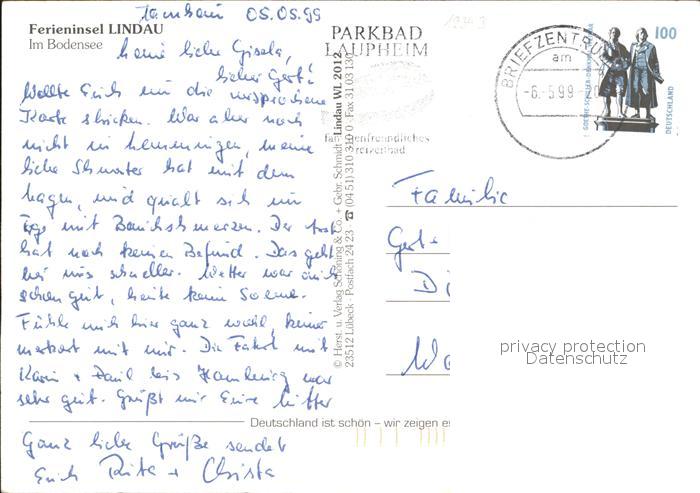 Ferieninsel LINDAU
Im Bodensee
05.05.99
liebe Gisela,
lieber Gert!
Wollte Euch nur die versprochene
Karte schicken. War aber noch
nicht in Memmingen, meine
liebe Schwester hat mit dem
Magen, und quält sich
mit Bauchschmerzen. Der Arzt
hat noch keinen Befund. Das geht
bei uns schneller. Wetter war auch
schon gut, heute keine Sonne.
Fühle mich hier ganz wohl, keiner
meckert mit mir. Die Fahrt mit
Karin + Paul bis Hamburg war
sehr gut. Grüßt mir Eure Mütter
Ganz liebe Grüße sendet
Euch Rita + Christa
PARKBAD
LAUPHEIM
freundliches
Freizeitbad
BRIEFZENTRUM
am
-6.-5.99-20
100
GOETHE-SCHILLER-DENKMAL
DEUTSCHLAND
© Herst. u. Verlag Schöning & Co. + Gebr. Schmidt · Lindau WL 2012
23512 Lübeck · Postfach 24 23 · ☎ (04 51) 310 310 · Fax 31 03 130
Familie
Gert +
Di
Wa
privacy protection
Datenschutz
Deutschland ist schön – wir zeigen es